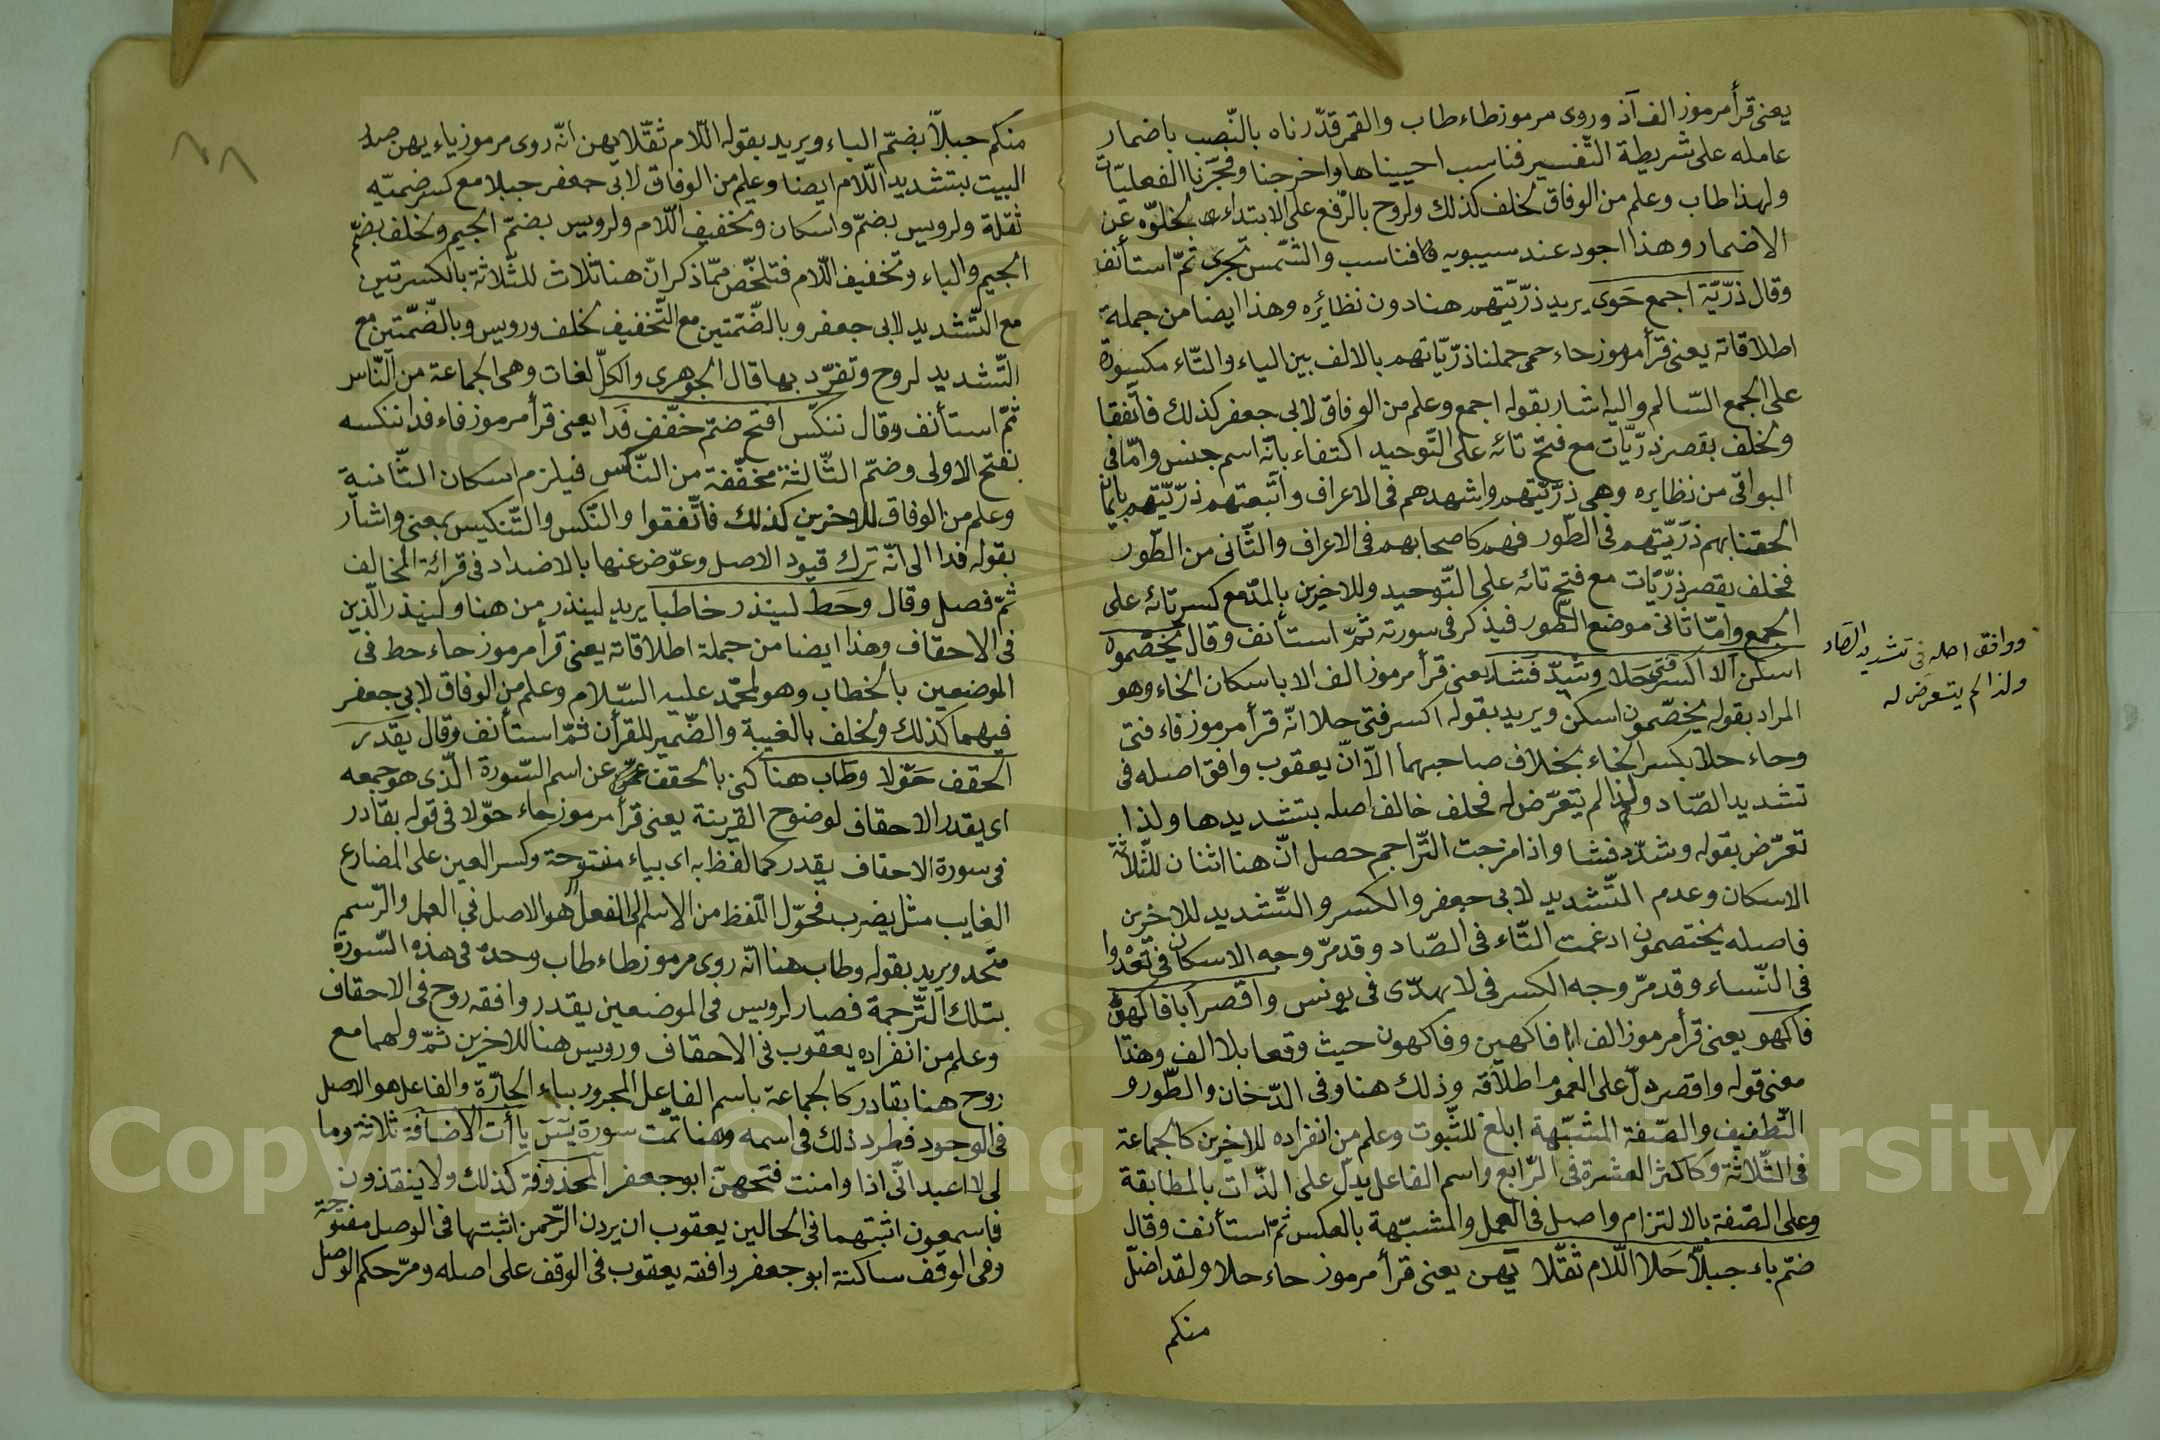 يعنى قرأ مرموز الف آذ وروى مرموز طاء طاب والقمر قدّرناه بالنّصب باضمار
عامله على شريطة التّفسير فناسب احييناها واخرجنا وفجّرنا الفعليّات
ولهذا طاب وعلم من الوفاق لخلف كذلك ولروح بالرّفع على الابتداء لخلوّه عن
الاضمار وهذا اجود عند سيبويه فناسب والشّمس تجرى ثمّ استأنف
وقال ذرّيّة اجمع حَوى يريد ذرّيّتهم هنا دون نظائره وهذا ايضا من جملة
اطلاقاته يعنى قرأ مرموز حاء حمى حملنا ذرّيّاتهم بالالف بين الياء والتّاء مكسورة
على الجمع السّالم واليه اشار بقوله اجمع وعلم من الوفاق لابى جعفر كذلك فاتّفقا
ولخلف بقصر ذرّيّات مع فتح تائه على التّوحيد اكتفاء بانّه اسم جنس وامّا فى
البواقى من نظايره وهى ذرّيّتهم واشهدهم فى الاعراف واتّبعتهم ذرّيّتهم بايمان
الحقنا بهم ذرّيّتهم فى الطّور فهم كاصحابهم فى الاعراف والثّانى من الطّور
فخلف بقصر ذرّيّات مع فتح تائه على التّوحيد وللاخرين بالمدّ مع كسر تائه على
الجمع وامّا ثانى موضع الطّور فيذكر فى سورته ثمّ استأنف وقال يخصّموه
اسكن الا اكسر فتى حَلا وشدّد فشا يعنى قرأ مرموز الف الا باسكان الخاء وهو
المراد بقوله يخصّمون اسكن ويريد بقوله اكسر فتى حلا انّه قرأ مرموز فاء فتى
وحاء حلا بكسر الخاء بخلاف صاحبهما الّا انّ يعقوب وافق اصله فى
تشديد الصّاد ولذا لم يتعرّض له فخلف خالف اصله بتشديدها ولذا
تعرّض بقوله وشدّد فشا واذا مزجت التّراجم حصل انّ هنا اثنان للثّلاثة
الاسكان وعدم التّشديد لابى جعفر والكسر والتّشديد للاخرين
فاصله يختصمون ادغمت التّاء فى الصّاد وقد مرّ وجه الاسكان فى تَعْدوا
فى النّساء وقد مرّ وجه الكسر فى لا يهدّى فى يونس واقصر ابا فاكهين
فاكهو يعنى قرأ مرموز الف ابا فاكهين وفاكهون حيث وقعا بلا الف وهذا
معنى قوله واقصر دلّ على العموم اطلاقه وذلك هنا وفى الدّخان والطّور و
التّطفيف والصّفة المشبّهة ابلغ للثّبوت وعلم من انفراده للاخرين كالجماعة
فى الثّلاثة وكاكثر العشرة فى الرّابع واسم الفاعل يدلّ على الذّات بالمطابقة
وعلى الصّفة بالالتزام واصل فى العمل والمشبّهة بالعكس ثمّ استأنف وقال
ضمّ باء جبلّا حَلا اللّام ثقّلا يهن يعنى قرأ مرموز حاء حلا ولقد اضلّ
منكم
ووافق اصله فى تشديد الصّاد
ولذا لم يتعرّض له
منكم جبلّا بضمّ الباء ويريد بقوله اللّام ثقّلا يهن انّه روى مرموز ياء يهن صدر
البيت بتشديد اللّام ايضا وعلم من الوفاق لابى جعفر جبلا مع كسر ضمتيه
ثقلة ولرويس بضمّ واسكان وتخفيف اللّام ولرويس بضمّ الجيم ولخلف بضمّ
الجيم والباء وتخفيف اللّام فتلخّص ممّا ذكر انّ هنا ثلاث للثّلاثة بالكسرتين
مع التّشديد لابى جعفر وبالضّمّتين مع التّخفيف لخلف ورويس وبالضّمّتين مع
التّشديد لروح وتفرّد بها قال الجوهرى والكلّ لغات وهى الجماعة من النّاس
ثمّ استأنف وقال ننكّس افتح ضمّ خفّف فَدا يعنى قرأ مرموز فاء فدا ننكسه
بفتح الاولى وضمّ الثّالثة مخفّفة من النّكس فيلزم اسكان الثّانية
وعلم من الوفاق للاخرين كذلك فاتّفقوا والنّكس والتّنكيس بمعنى واشار
بقوله فدا الى انّه ترك قيود الاصل وعوّض عنها بالاضداد فى قرائة المخالف
ثمّ فصل وقال وحَط لينذر خاطبا يريد لينذر من هنا ولينذر الّذين
فى الاحقاف وهذا ايضا من جملة اطلاقاته يعنى قرأ مرموز حاء حط فى
الموضعين بالخطاب وهو لمحمّد عليه السّلام وعلم من الوفاق لابى جعفر
فيهما كذلك ولخلف بالغيبة والضّمير للقرأن ثمّ استأنف وقال يقدر
الحقف حَوّلا وطاب هنا كنى بالحقف عن اسم السّورة الّذى هو جمعه
اى يقدر الاحقاف لوضوح القرينة يعنى قرأ مرموز حاء حوّلا فى قوله بقادر
فى سورة الاحقاف يقدر كما لفظ به اى بياء مفتوحة وكسر العين على المضارع
الغايب مثل يضرب فحوّل اللّفظ من الاسم الى الفعل هو الاصل فى العمل والرّسم
متّحد ويريد بقوله وطاب هنا انّه روى مرموز طاء طاب وحده فى هذه السّورة
بتلك التّرجمة فصار لرويس فى الموضعين يقدر وافقه روح فى الاحقاف
وعلم من انفراده يعقوب فى الاحقاف ورويس هنا للاخرين ثمّ ولهما مع
روح هنا بقادر كالجماعة باسم الفاعل المجرور بباء الجارّة والفاعل هو الاصل
فى الوجود فطرد ذلك فى اسمه وهنا تمّت سورة يٓسٓ ياأت الاضافة ثلاثة وما
لى لا اعبد انّى اذا وامنت فتحهنّ ابو جعفر المحذوفة كذلك ولا ينقذون
فاسمعون اثبتهما فى الحالين يعقوب ان يردن الرّحمن اثبتها فى الوصل مفتوحة
وفى الوقف ساكنة ابو جعفر وافقه يعقوب فى الوقف على اصله ومرّ حكم الوصل
Copyright © King Saud University